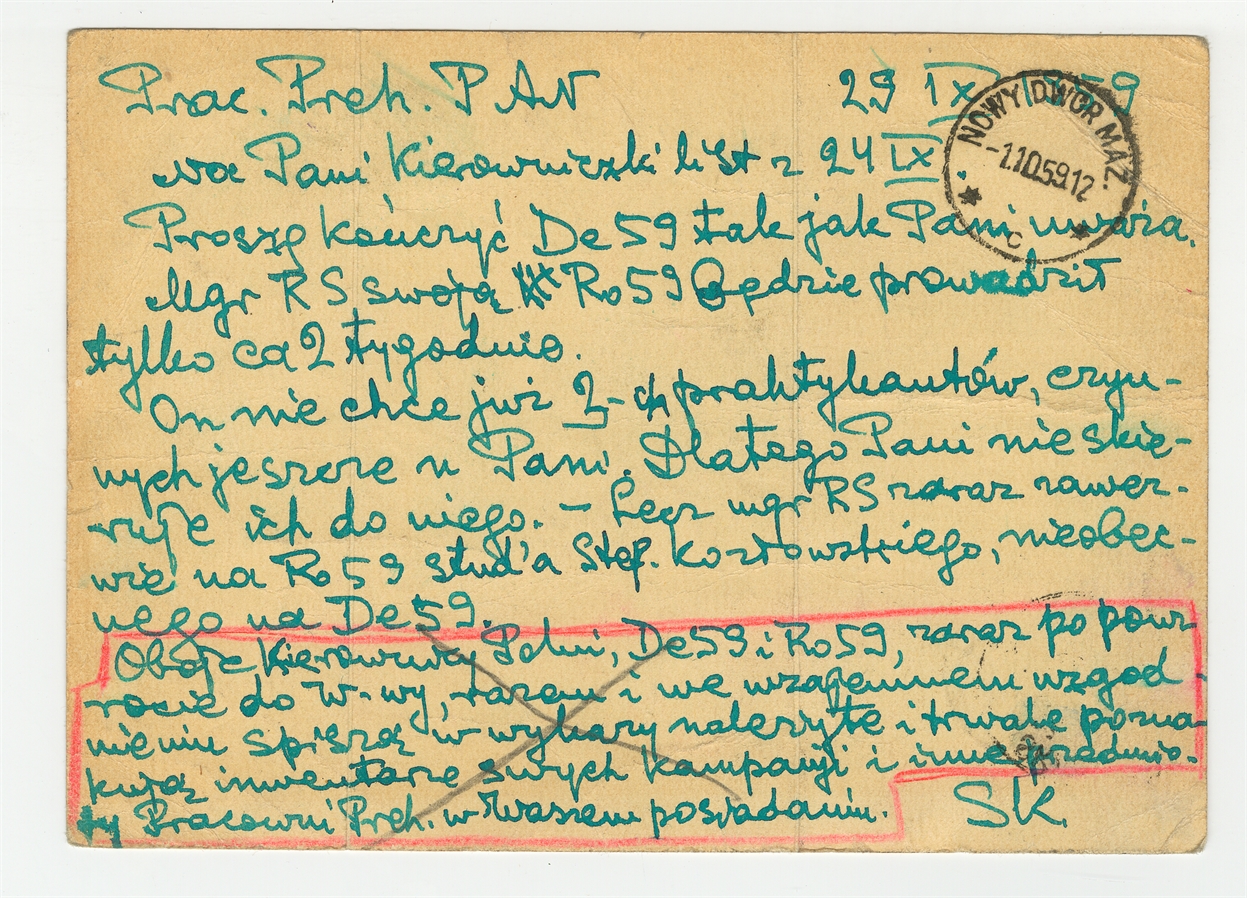 Prac. Preh. PAN 29 IX 1959
NOWY DWÓR MAZ.
-1.10.59.12
C
na Pani Kierowniczki list z 24 IX.
Proszę kończyć De 59 tak jak Pani uważa.
Mgr RS swoją Ro 59 będzie prowadził
tylko ca 2 tygodnie.
On nie chce już 2-ch praktykantów, czyn-
nych jeszcze u Pani. Dlatego Pani nie skie-
ruje ich do niego. - Lecz mgr RS zaraz zawez-
wie na Ro 59 stud'a Stef. Kozłowskiego, nieobec-
nego na De 59.
Oboje Kierownicy Polni, De 59 i Ro 59, zaraz po pow-
rocie do W-wy, razem i we wzajemnem uzgod-
nieniu spiszą w wykazy należyte i trwale pozna-
kują inwentarze swych kampanji i inne przedmio-
ty Pracowni Preh. w Waszem posiadaniu.
SK